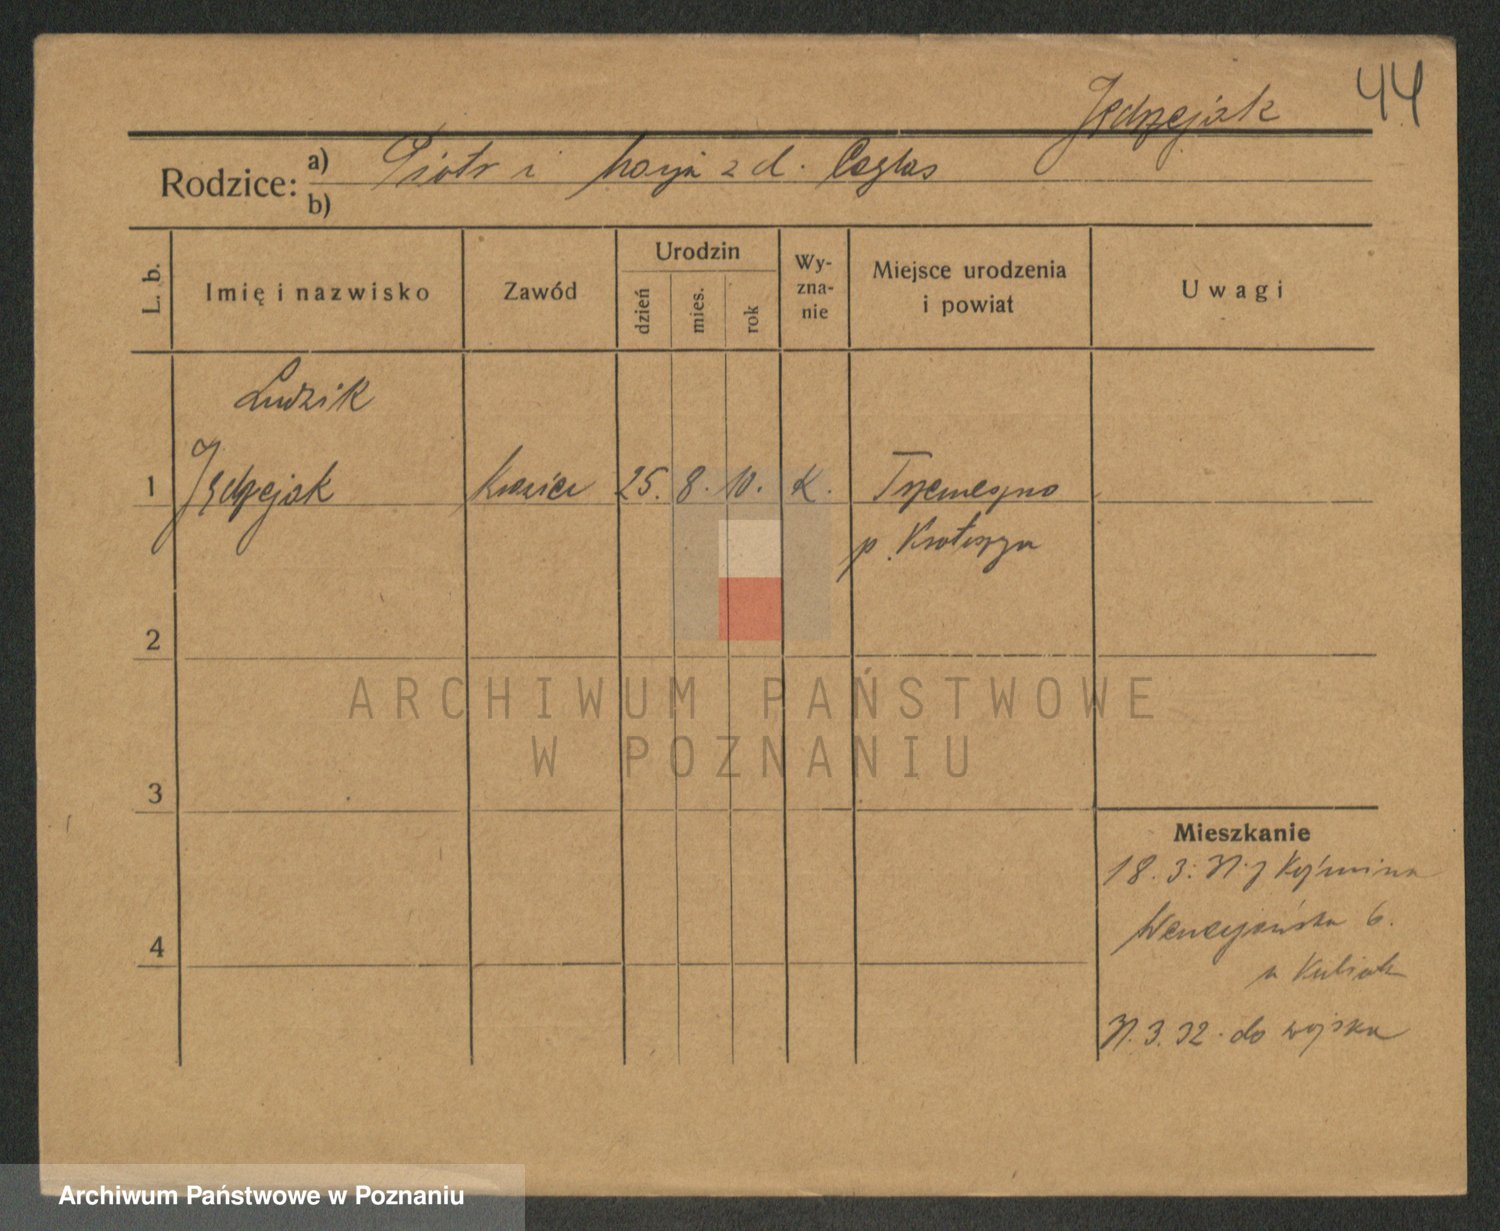 44
Jędrzejak
Rodzice: a) Piotr i Marja z d. Caglas
b)
L. b.
Imię i nazwisko
Zawód
Urodzin
dzień
mies.
rok
Wy-
zna-
nie
Miejsce urodzenia
i powiat
Uwagi
Ludzik
1 Jędrzejak krawiec 25. 8. 10. k. Trzemeszno
p. Krotoszyn
2
3
4
Mieszkanie
18. 3. 31. z Koźmina
6.
u Kubiak
31. 3. 32. do wojska
ARCHIWUM PAŃSTWOWE
W POZNANIU
Archiwum Państwowe w Poznaniu